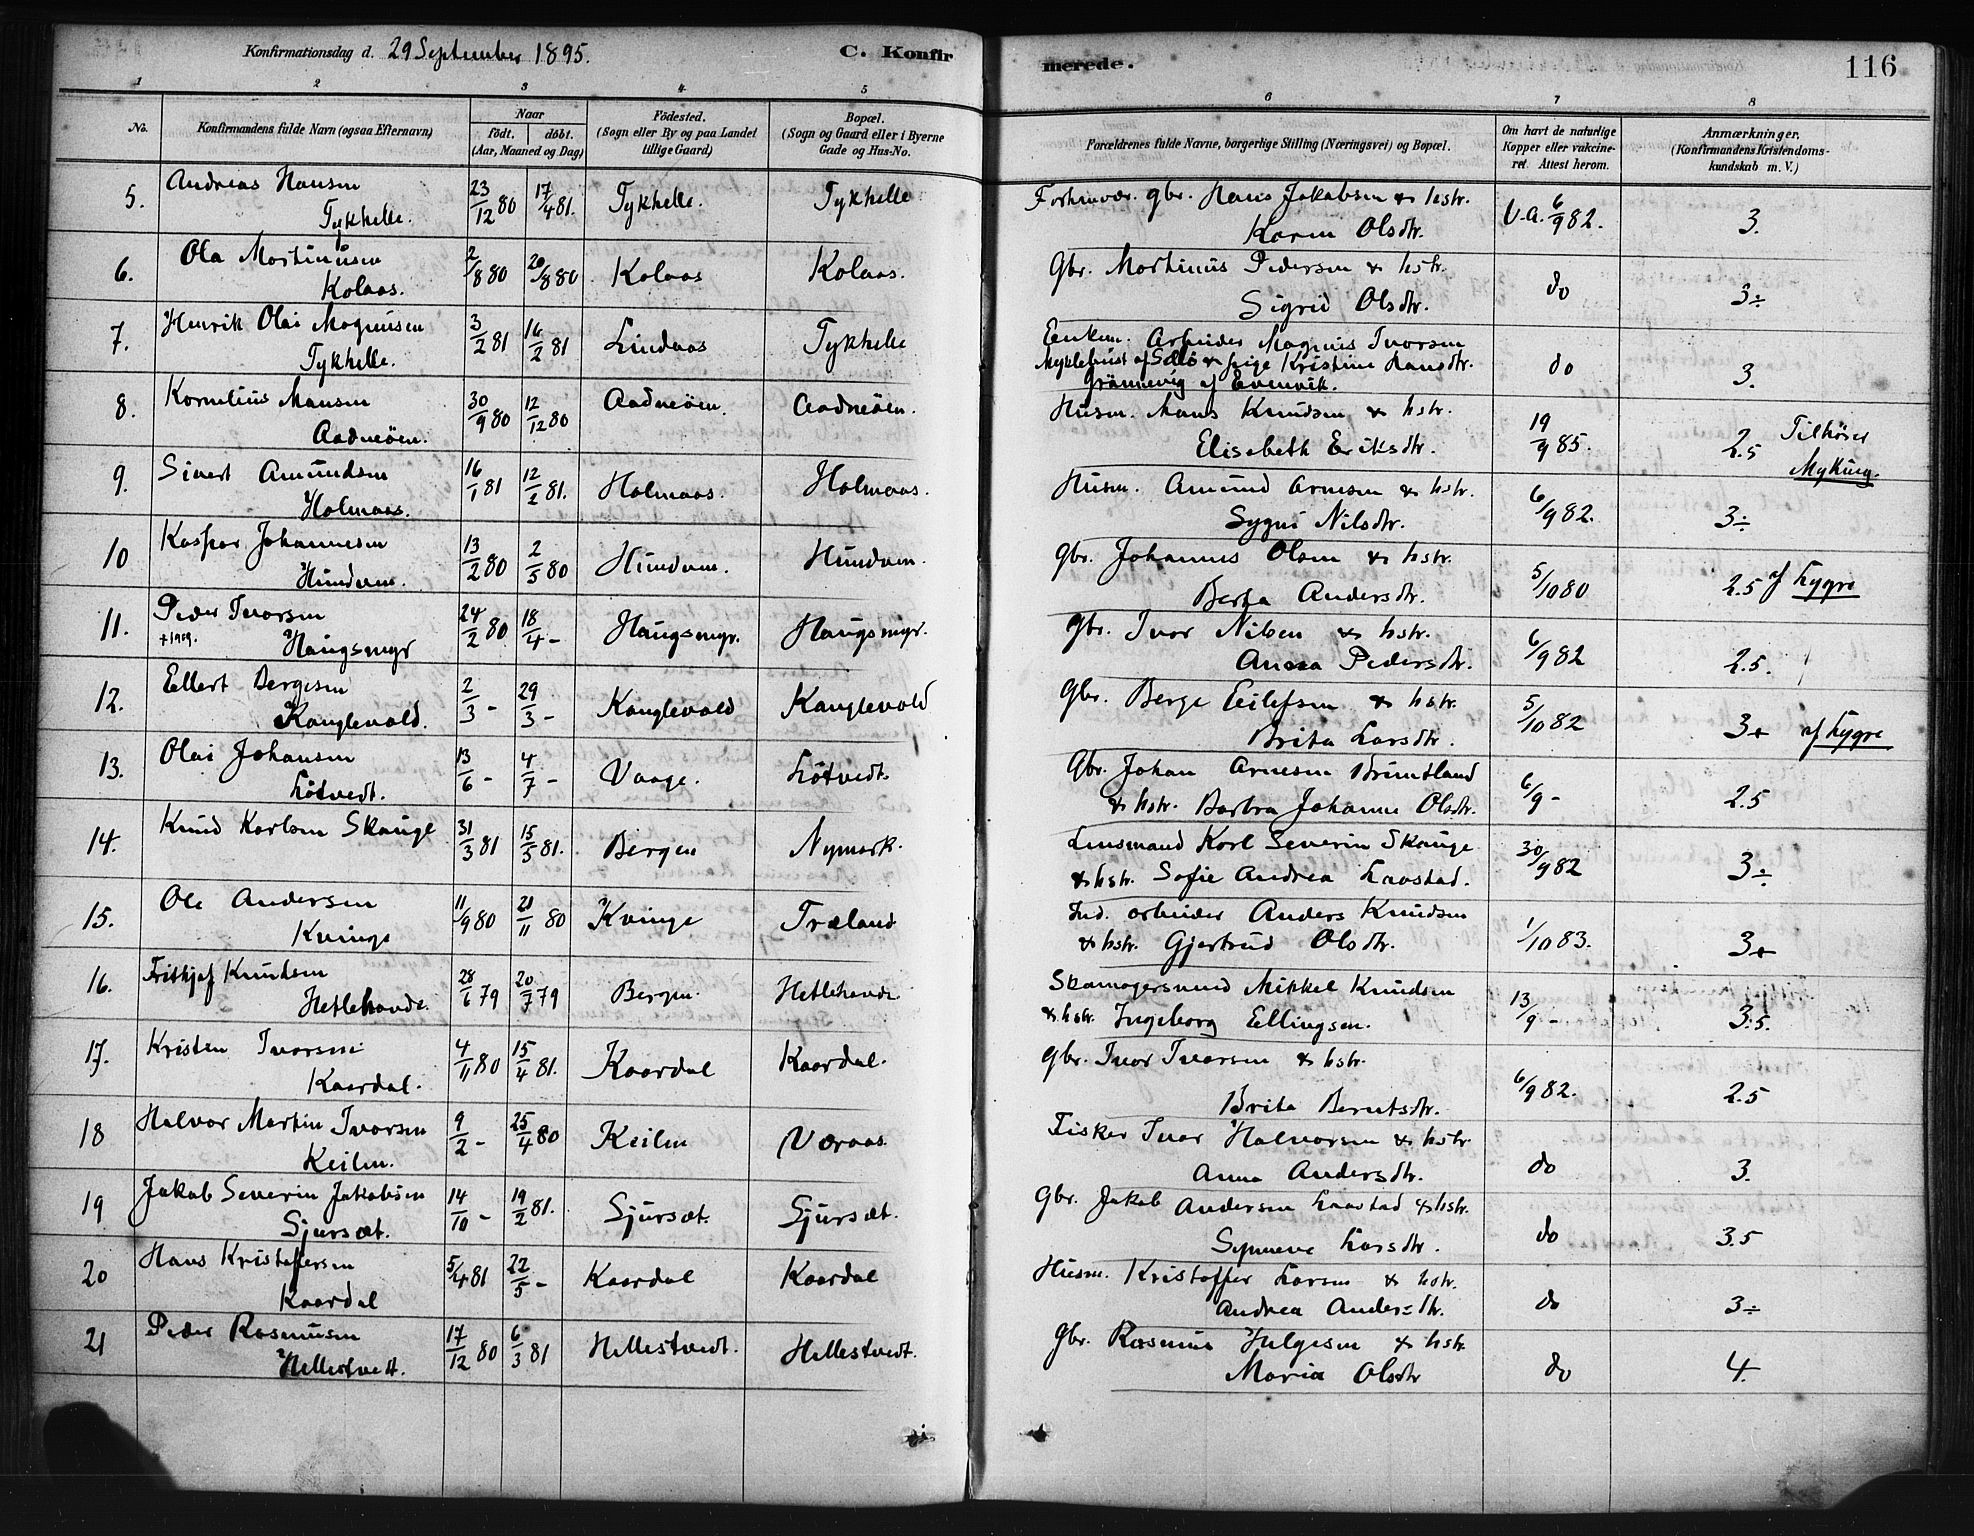 Konfirmationsdag d. 29 September 1895. C. Konfir
merede. 116
1 2 3 4 5 6 7 8
No. Konfirmandens fulde Navn (ogsaa Efternavn) Naar født. døbt. (Aar, Maaned og Dag) Fødested. (Sogn eller By og paa Landet tillige Gaard) Bopæl. (Sogn og Gaard eller i Byerne Gade og Hus-No. Forældrenes fulde Navne, borgerlige Stilling (Næringsvei) og Bopæl. Om havt de naturlige Kopper eller vakcineret. Attest herom. Anmærkninger. (Konfirmandens Kristendomskundskab m. V.)
5. Andreas Hansen 23/12 80 17/4 81. Tykhelle. Tykhelle Forhenvær. gbr. Hans Jakobsen & hstr. V.a. 6/9 82. 3.
Tykhelle. Karin Olsdtr.
6. Ola Martinusen 2/8 80 20/8 80 Kolaas Kolaas. Gbr. Martinus Pedersen & hstr. do 3÷
Kolaas. Sigrid Olsdtr.
7. Henrik Olai Magnusen 3/2 81 16/2 81 Lindaas Tykhelle Enkem. Arbeider Magnus Ivarsen do 3.
Tykhelle. Myklebust af Sælø & pige Kristine Hansdtr.
Grønnevig af Evenvik.
8. Kornelius Mansen 30/9 80 12/12 80 Aadneöen. Aadneöen. Husm. Mans Knudsen & hstr. 19/9 85. 2.5 Tilhører
Aadneöen. Elisabeth Eriksdtr. Myking.
9. Sivert Amundsen 16/1 81 12/2 81. Holmaas. Holmaas. Husm. Amund Arnesen & hstr. 6/9 82. 3÷
Holmaas. Sygni Nilsdtr.
10 Kaspar Johannesen 13/2 80 2/5 80 Hundven. Hundven. Gbr. Johannes Olsen & hstr. 5/10 80 2.5 af Lygre
Hundven. Berta Andersdtr.
11. Peder Ivarsen 24/2 80 18/4 - Haugsmyr. Haugsmyr. Gbr. Ivar Nilsen & hstr. 6/9 82 2.5.
+1909. Haugsmyr Anna Pedersdtr.
12. Ellert Bergesen 2/3 - 29/3 - Kanglevold Kanglevold Gbr. Berge Eilefsen & hstr. 5/10 82 3+ af Lygre
Kanglevold. Brita Larsdtr.
13. Olai Johansen 13/6 - 4/7 - Vaage. Løtvedt. Gbr. Johan Arnesen Brundtland 6/9 - 2.5
Løtvedt. & hstr. Barbra Johanne Olsdtr.
14. Knud Karlsen Skauge 31/3 81 15/5 81. Bergen Nymark. Lensmand Karl Severin Skauge 30/9 82 3÷
& hstr. Sofie Andrea Laastad.
15. Ole Andersen 11/9 80 21/11 80 Kvinge Træland Ind. arbeider Anders Knudsen 1/10 83. 3+
Kvinge & hstr. Gjertrud Olsdtr.
16. Frithjof Knudsen 28/6 79 20/7 79 Bergen. Hetlehande Skomagersvend Mikkel Knudsen 13/9 - 3.5.
Hetlehande. & hstr. Ingeborg Ellingsen.
17. Kristen Ivarsen 4/11 80 15/4 81. Kaardal Kaardal. Gbr. Ivar Ivarsen & hstr. 6/9 82. 2.5
Kaardal. Brita Berntsdtr.
18 Halvor Martin Ivarsen 9/2 - 25/4 80 Keilen Væraas. Fisker Ivar Halvorsen & hstr. do 3.
Keilen. Anna Andersdtr.
19 Jakob Severin Jakobsen 14/10 - 19/2 81. Sjursæt. Sjursæt. Gbr. Jakob Andersen Laastad & hstr. do 3.5
Sjursæt. Synneve Larsdtr.
20 Hans Kristoffersen 5/4 81 22/5 - Kaardal Kaardal Husm. Kristoffer Larsen & hstr. do 3÷
Kaardal Andrea Andersdtr.
21 Peder Rasmusen 17/12 80 6/3 81 Hellestvedt. Hellestvedt. Gbr. Rasmus Helgesen & hstr. do 4.
Hellestvett. Maria Olsdtr